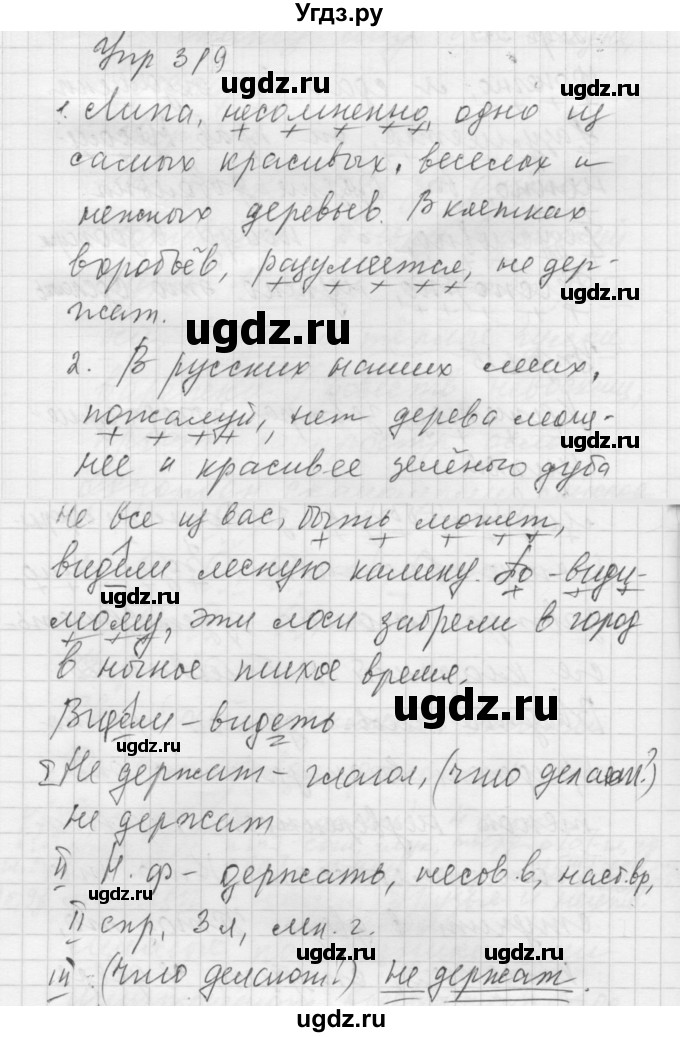 Угдз.ру
Упр 319
1. Липа, несомненно, одно из
самых красивых, веселых и
нежных деревьев. В клетках
воробьёв, разумеется, не дер-
жат.
ugdz.ru
ugdz.ru
2. В русских наших лесах,
пожалуй, нет дерева мощ-
ugdz.ru
нее и красивее зелёного дуба
Не все из вас, быть может,
видели лесную калину. По-види-
ugdz.ru
ugdz.ru
мому, эти лоси забрели в город
в ночное тихое время.
ugdz.ru
Видели – видеть
I Не держат – глагол, (что делают?)
не держат
II Н. ф – держать, несов.в, наст.вр,
ugdz.ru
II спр, 3 л, мн. г.
ugdz.ru
ugdz.ru
III. (Что делают?) не держат.
ugdz.ru